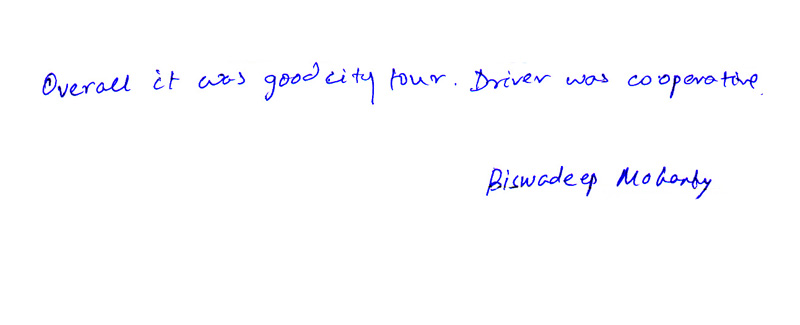 Overall it was good city tour. Driver was cooperative.
Biswadeep Mohanty